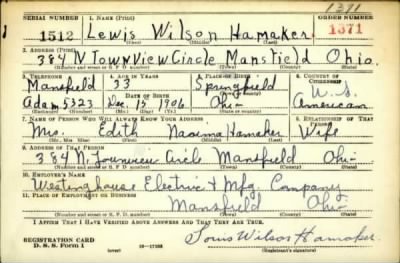 1371
SERIAL NUMBER 1. NAME (Print) ORDER NUMBER
1512 Lewis Wilson Hamaker 1371
(First) (Middle) (Last)
2. ADDRESS (Print)
384 N Townview Circle Mansfield Ohio.
(Number and street or R. F. D. number) (Town) (County) (State)
3. TELEPHONE 4. AGE IN YEARS 5. PLACE OF BIRTH 6. COUNTRY OF CITIZENSHIP
Mansfield 33 Springfield U.S.
Adam 5323 Dec. 15 1906 Ohio American
7. NAME OF PERSON WHO WILL ALWAYS KNOW YOUR ADDRESS 8. RELATIONSHIP OF THAT PERSON
Mrs. Edith Naoima Hamaker Wife
(Mr., Mrs., Miss) (First) (Middle) (Last)
9. ADDRESS OF THAT PERSON
384 N. Townview Circle Mansfield Ohio
(Number and street or R. F. D. number) (Town) (County) (State)
10. EMPLOYER'S NAME
Westinghouse Electric & Mfg. Company
11. PLACE OF EMPLOYMENT OR BUSINESS
Mansfield Ohio
(Number and street or R. F. D. number) (Town) (County) (State)
I AFFIRM THAT I HAVE VERIFIED ABOVE ANSWERS AND THAT THEY ARE TRUE.
REGISTRATION CARD
D. S. S. Form 1 (over) Lewis Wilson Hamaker